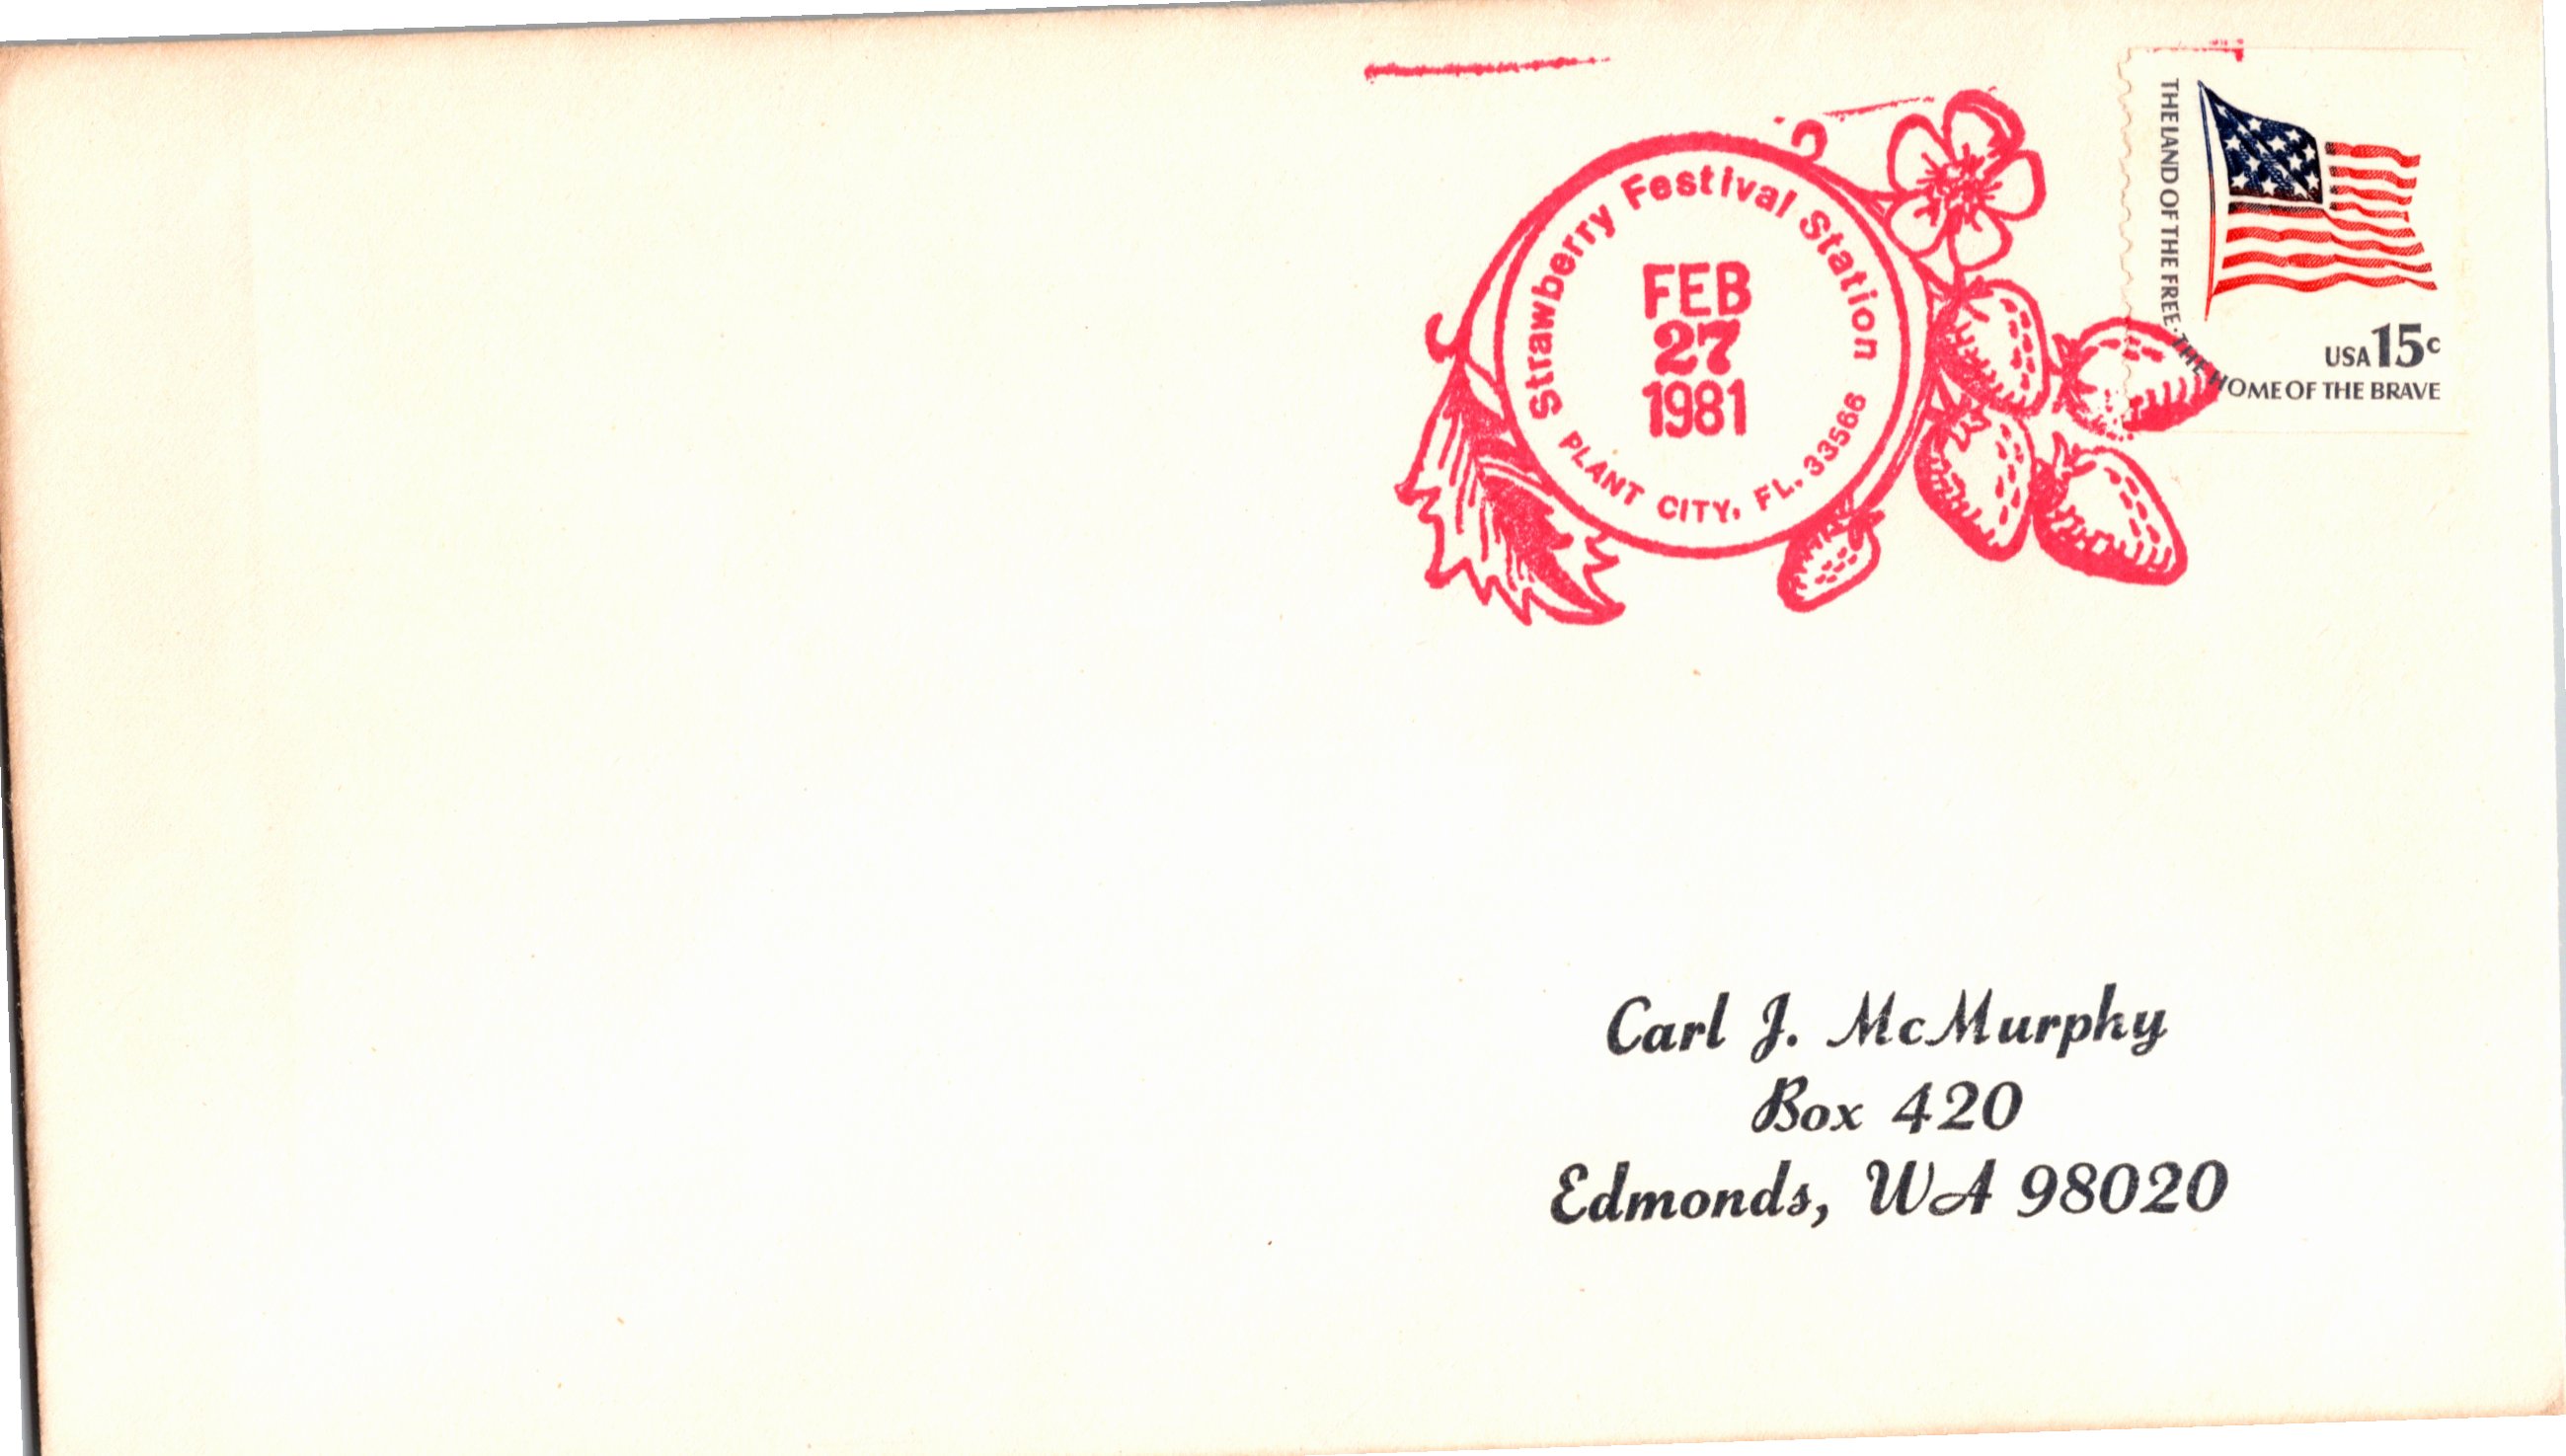 Strawberry Festival Station
FEB
27
1981
PLANT CITY, FL. 33566
THE LAND OF THE FREE · THE HOME OF THE BRAVE
USA 15c
Carl J. McMurphy
Box 420
Edmonds, WA 98020